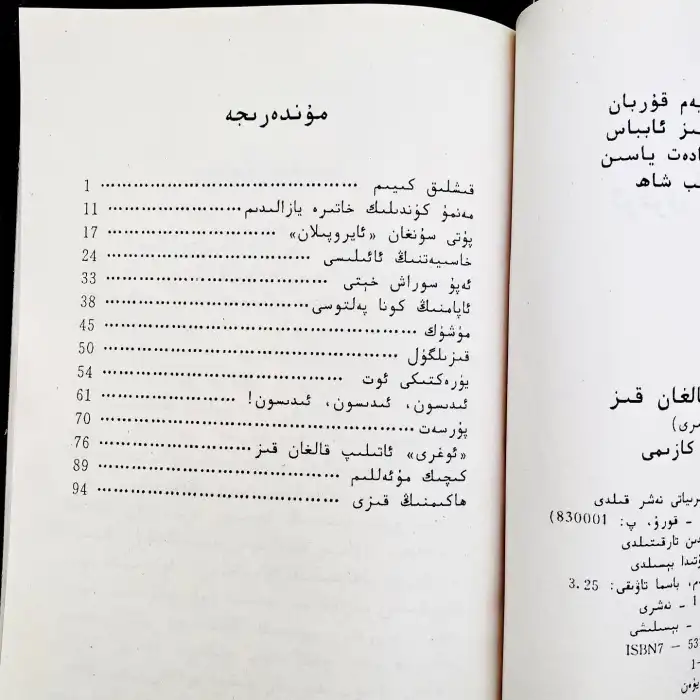 مۇندەرىجە
قىشلىق كىيىم ........................................ 1
مەنمۇ كۈندىلىك خاتىرە يازالىدىم ........................ 11
پۇتى سۇنغان «ئايروپىلان» ........................ 17
خاسىيەتنىڭ ئائىلىسى ................................ 24
ئەپۇ سوراش خېتى ................................ 33
ئاپامنىڭ كونا پەلتوسى ................................ 38
مۈشۈك ................................................ 45
قىزىلگۈل ........................................ 50
يۈرەكتىكى ئوت ................................ 54
ئىدىسون، ئىدىسون، ئىدىسون! ........................ 61
پۇرسەت ................................................ 70
«ئوغرى» ئاتىلىپ قالغان قىز ........................ 76
كىچىك مۇئەللىم ................................ 89
ھاكىمنىڭ قىزى ................................ 94
قۇربان
ئابباس
ياسىن
شاھ
قىز
كازىمى
نەشر قىلدى
- قورۇ، پ: 830001)
تارقىتىلدى
بېسىلدى
باسما تاۋىقى: 3.25
1 - نەشرى
- بېسىلىشى
ISBN7 – 53